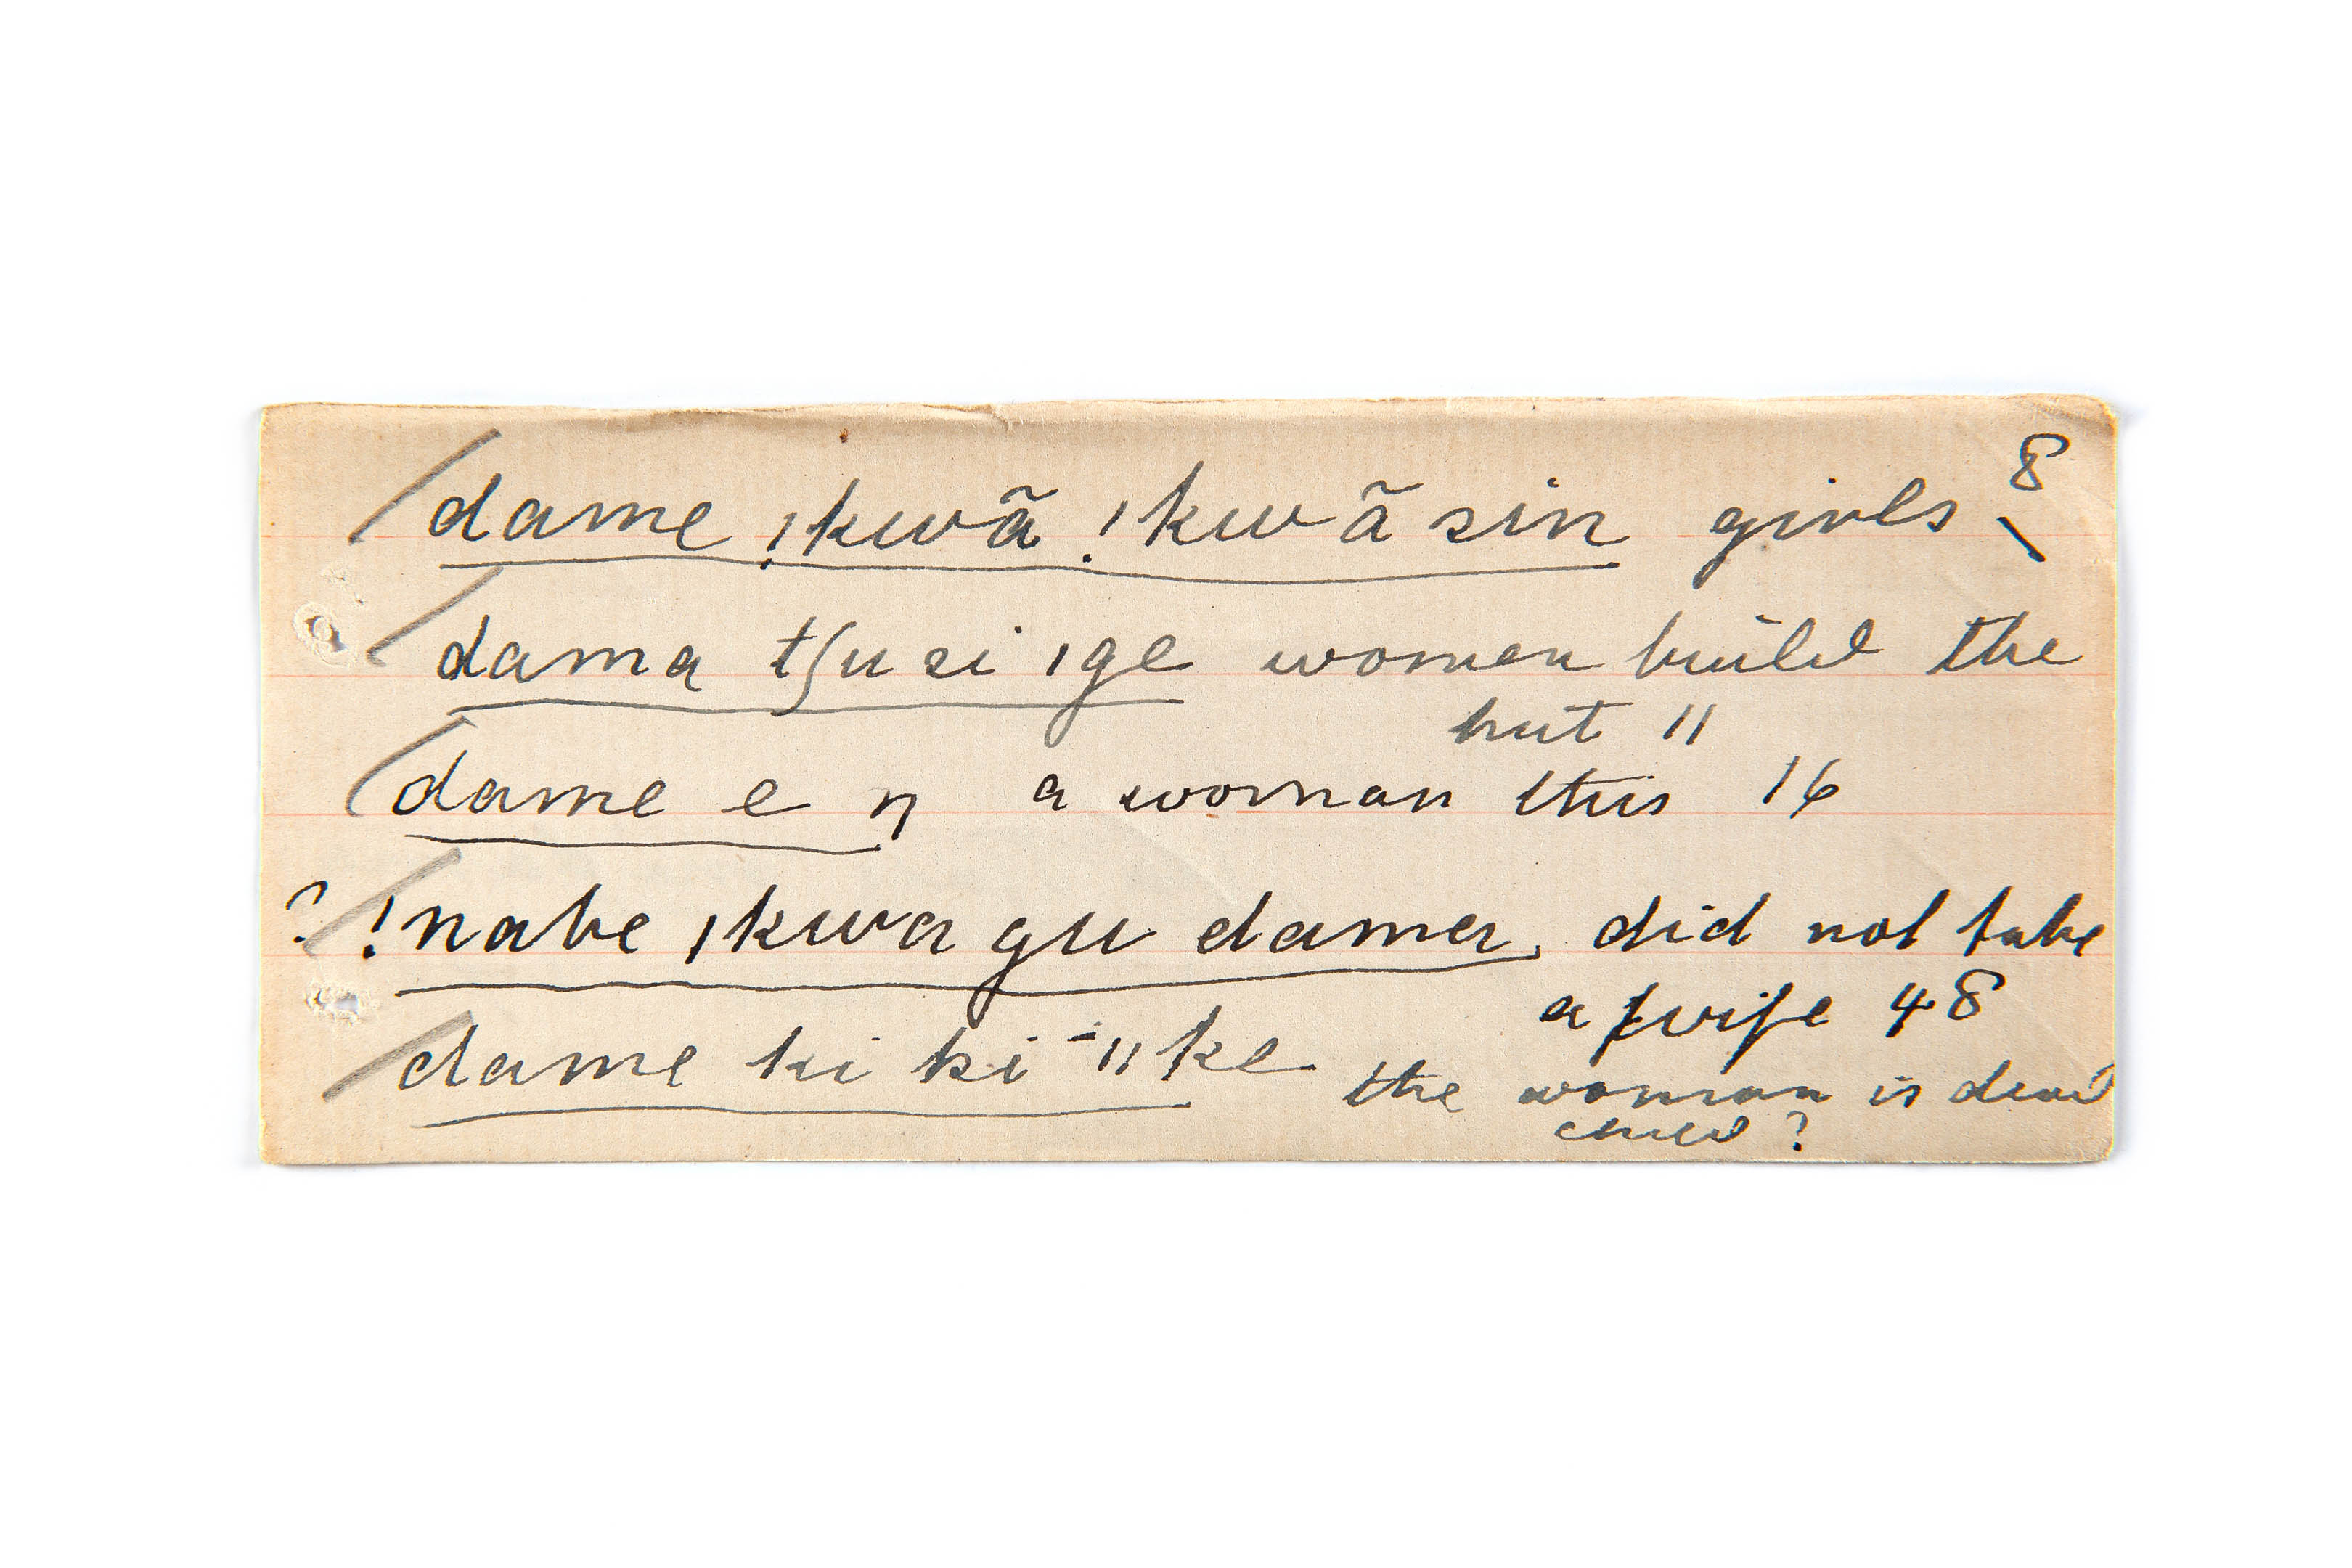 dame !kwã !kwã sin girls 8
dama tʃu si ǀge women build the
hut 11
dame e ŋ a woman this 16
? !nabe ǀkwa gu dama, did not take
a wife 48
dame ki ki -ǁke the woman is dead
child ?